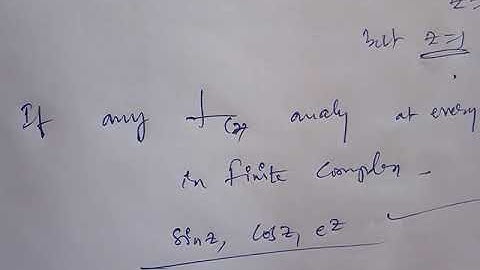 z=
but z=1
If any f(z) analy at every
in finite complex -
sinz, cosz, e^z